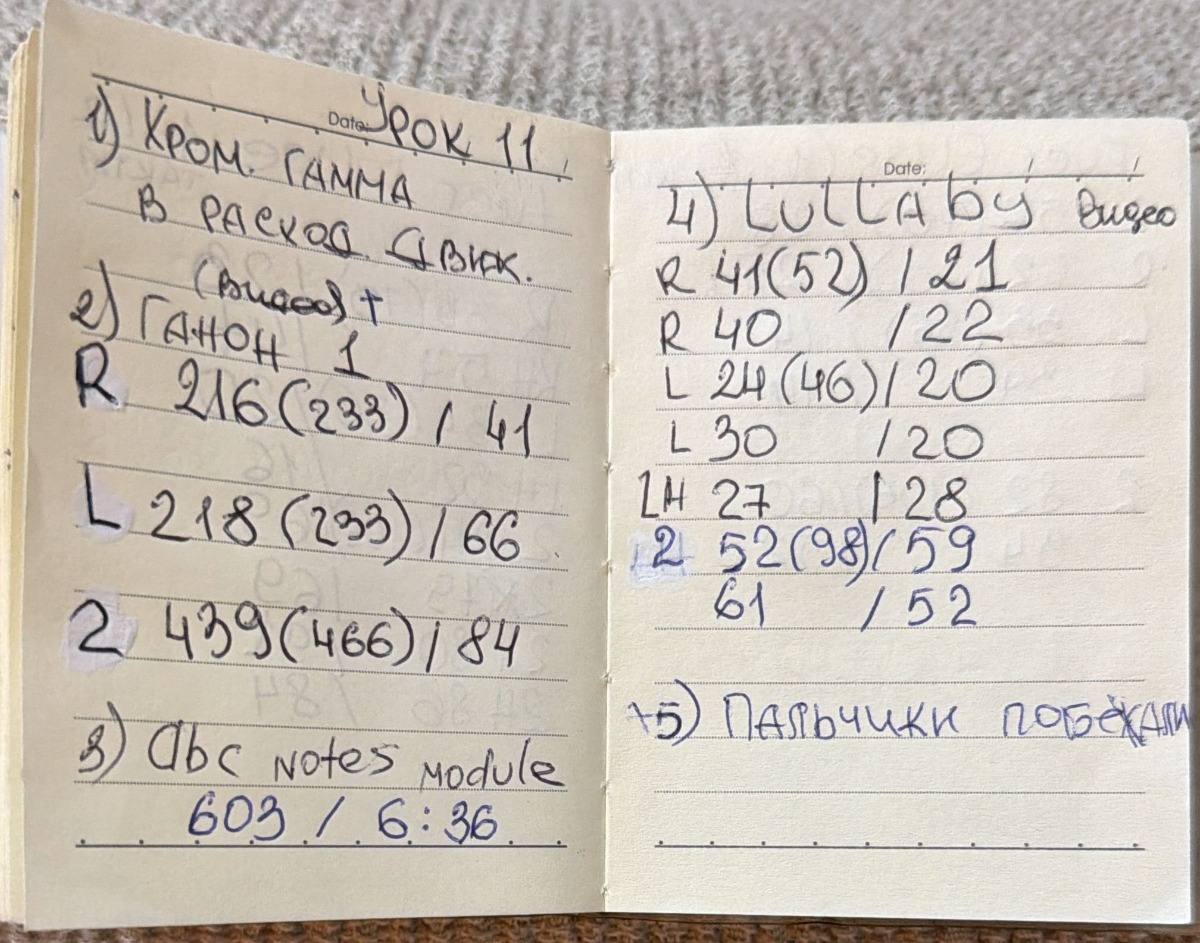 Date: Урок 11
1) Хром. гамма
в расход. движ.
(видео) +
2) Ганон 1
R 216(233) / 41
L 218 (233) / 66
2 439(466) / 84
3) abc Notes module
603 / 6:36
Date:
4) LULLAby видео
R 41(52) / 21
R 40 / 22
L 24(46) / 20
L 30 / 20
LH 27 / 28
2 52(98) / 59
61 / 52
+5) Пальчики побежали